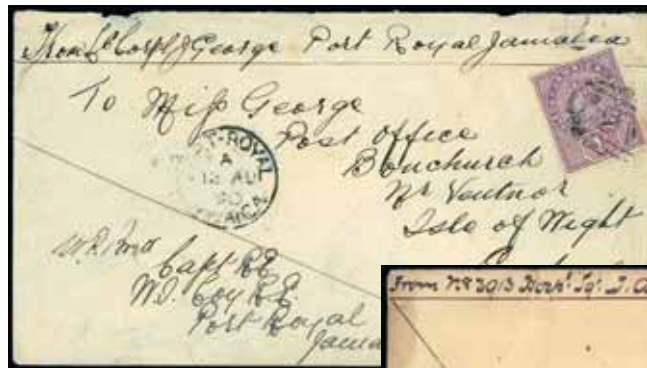 Corpl J George Port Royal Jamaica
To Miss George
Post Office
Bonchurch
Nr Ventnor
Isle of Wight
PORT-ROYAL
A
12 AU
90
JAMAICA
Capt RE
W.I. Coy R.E.
Port Royal
Jama
From No 3013 Corpl